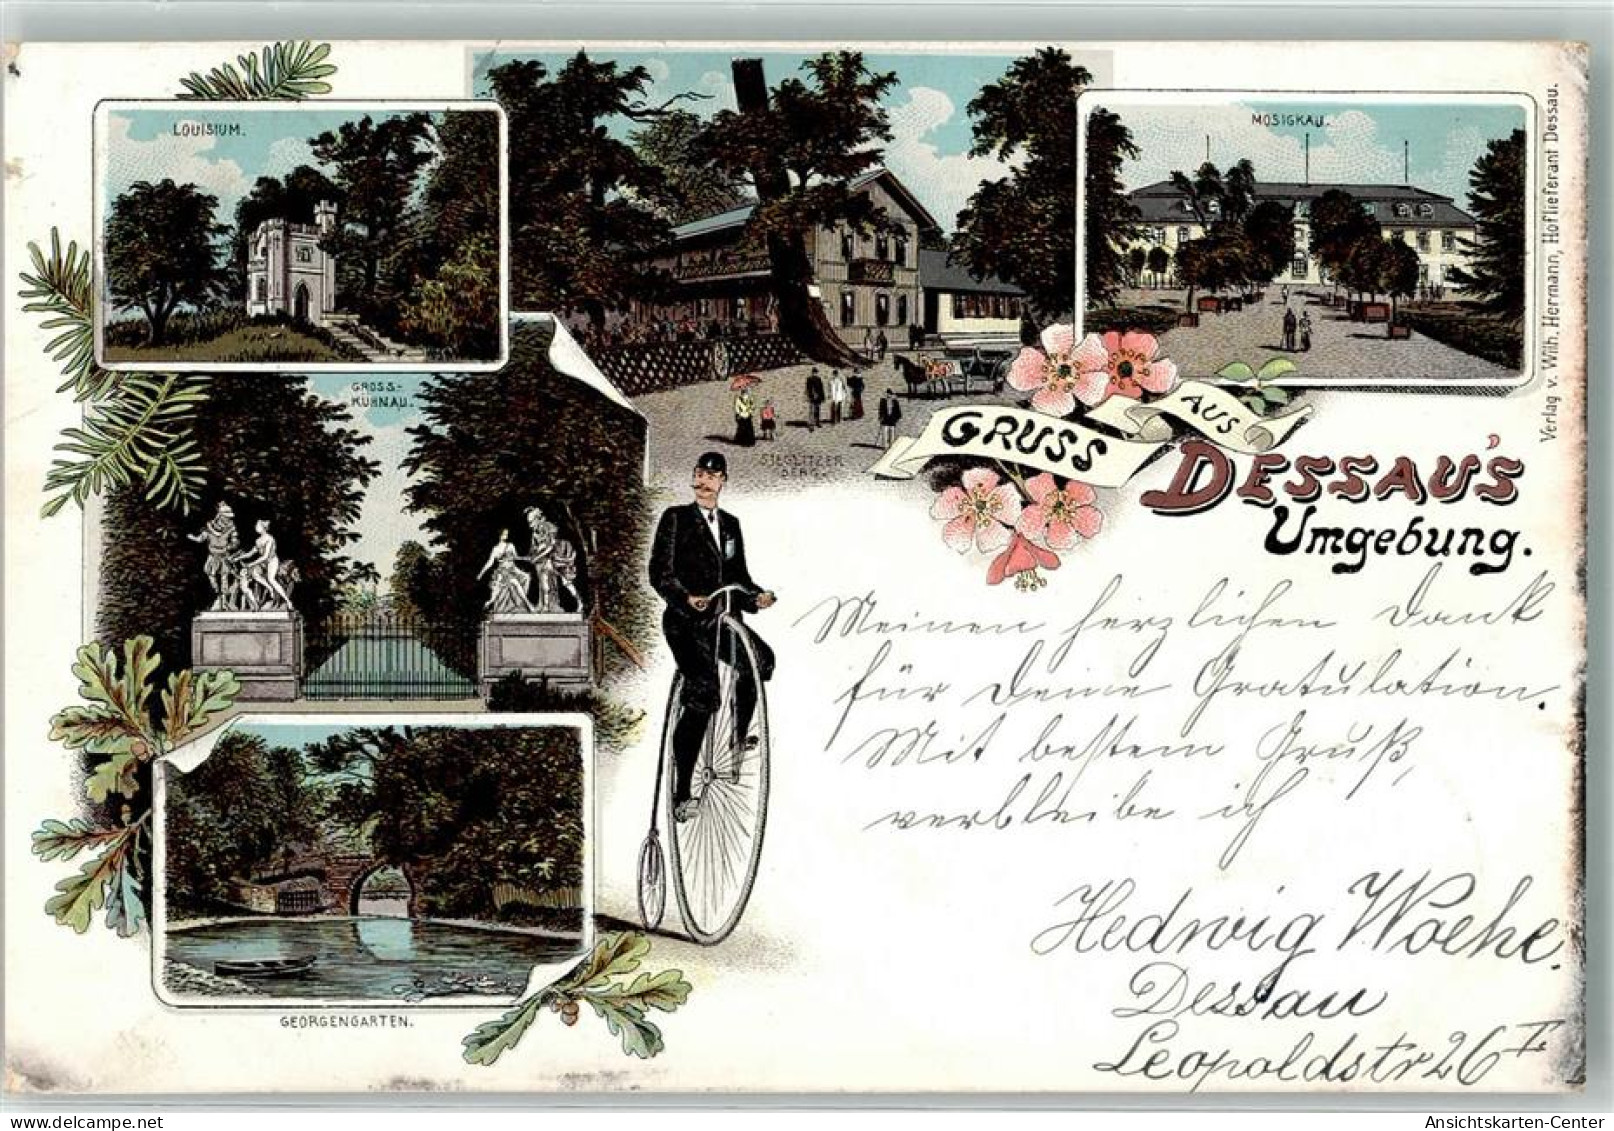 LOUISIUM.
MOSIGKAU.
GROSS-
KÜHNAU.
SIEGLITZER
BERG.
GRUSS
AUS
DESSAU'S
Umgebung.
Verlag v. Wilh. Hermann, Hoflieferant Dessau.
Meinen herzlichen Dank
für Deine Gratulation.
Mit bestem Gruß,
verbleibe ich
Hedwig Woche.
Dessau
Leopoldstr 26 I.
GEORGENGARTEN.
Ansichtskarten-Center